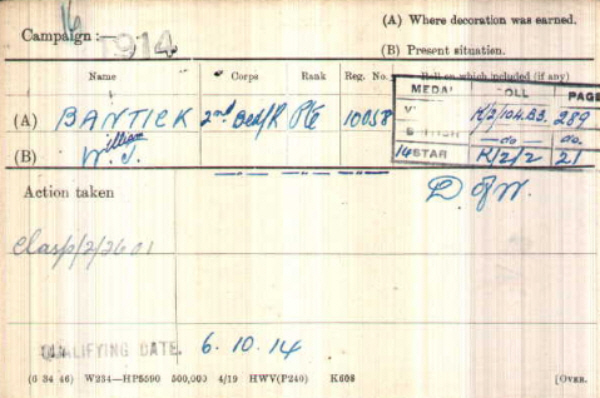 (A) Where decoration was earned.
16
Campaign :— 1914
(B) Present situation.
Name Corps Rank Reg. No. Roll on which included (if any)
MEDAL ROLL PAGE
(A) BANTICK 2nd Bedf/R Pte 10058 V K/2/104.B3. 289
BRITISH —do— do.
illiam
(B) W. J. 14 STAR K/2/2 21
Action taken D. of W.
Clasp/2/2601
QUALIFYING DATE. 6.10.14
(6 34 46) W234—HP5590 500,000 4/19 HWV(P240) K608 [OVER.